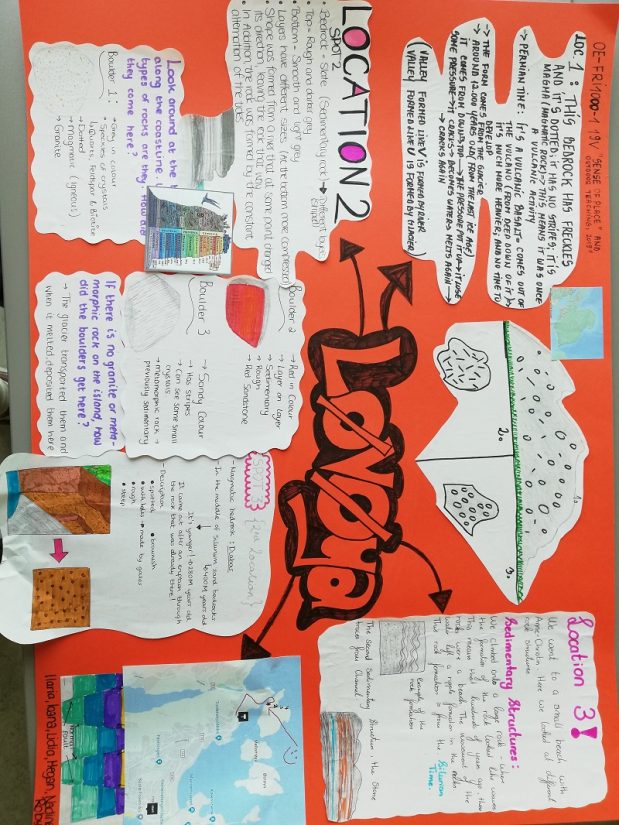 OE-FRI1000-1 19V "SENSE OF PLACE" AND
OUTDOOR TEACHING, 2019
LOC 1: THIS BEDROCK HAS FRECKLES
AND IT'S DOTTED; IT HAS NO STRIPES; IT IS
MAGMA (MAGMATIC ROCK) => THIS MEANS IT WAS ONCE
A VULCANIC ACTIVITY
-> PERMIAN TIME: IT'S A VULCANIC BASALT - COMES OUT OF
THE VULCANO; FROM DEEP DOWN OF IT
IT'S MUCH MORE HEAVIER; AND NO TIME TO
DEVELOP
-> THE FORM COMES FROM THE GLACIER
-> AROUND 12.000 YEARS OLD (FROM THE LAST ICE AGE)
IT COMES FROM DOWN TO TOP -> THE PRESSURE PUT IT UP -> IT LOSE
SOME PRESSURE -> IT CRACKS -> BECOMES WATER & MELTS AGAIN
-> CRACKS AGAIN
(VALLEY FORMED LIKE V IS FORMED BY RIVER
VALLEY FORMED LIKE U IS FORMED BY GLACIER)
LOCATION 2
SPOT 2
• Bedrock - Slate (Sedimentary rock) -> Different layers,
striped
• Top - Rough and darker grey
• Bottom - Smooth and light grey
• Layers have different sizes (at the bottom more compressed)
• Shape was formed from a river that at some point changed
its direction, leaving one rock that way
• In Addition the rock was formed by the constant
alternation of the tides
Look around at the b
along the coastline. W
types of rocks are they? How did
they come here?
Boulder 1:
• Grey in colour
• Speckles of crystals
↳ Quartz, Feldspar & Biotite
• Dotted
• magmatic (igneous)
-> Granite
Boulder 2
-> Red in colour
-> Layer on layer
-> Sedimentary
-> Rough
-> Red Sandstone
Boulder 3
-> Sandy Colour
-> Has stripes
-> Can see some small
crystals
-> metamorphic rock ->
previously sedimentary
If there is no granite or meta-
morphic rock on the island, how
did the boulders get here?
-> The glacier transported them and
when it melted deposited them here
Løvøya
1.
2.
3.
SPOT 3 {2nd location}
- Magmatic bedrock: Diabas
In the middle of Silurium sand bedrocks
↳ 400M years old
It's younger! ~ 280M years old
It came out after an eruption through
the rock that was already there!
- Description
• spotted
• brownish
• with holes -> made by gases
• rough
• steep
Location 3!
We went to a small beach with
Anne Carolin. Here we looked at different
rock structures
Sedimentary Structures:
We climbed onto a large rock - when
the formation of the rock looked like waves
This means that hundreds of years ago, these
rocks were a beach. The movement of the
water left a ripple formation in the rocks
This rock formation is from the Silurian
Time.
Example of the
rock formation
The Second Sedimentary Structure: the Stone